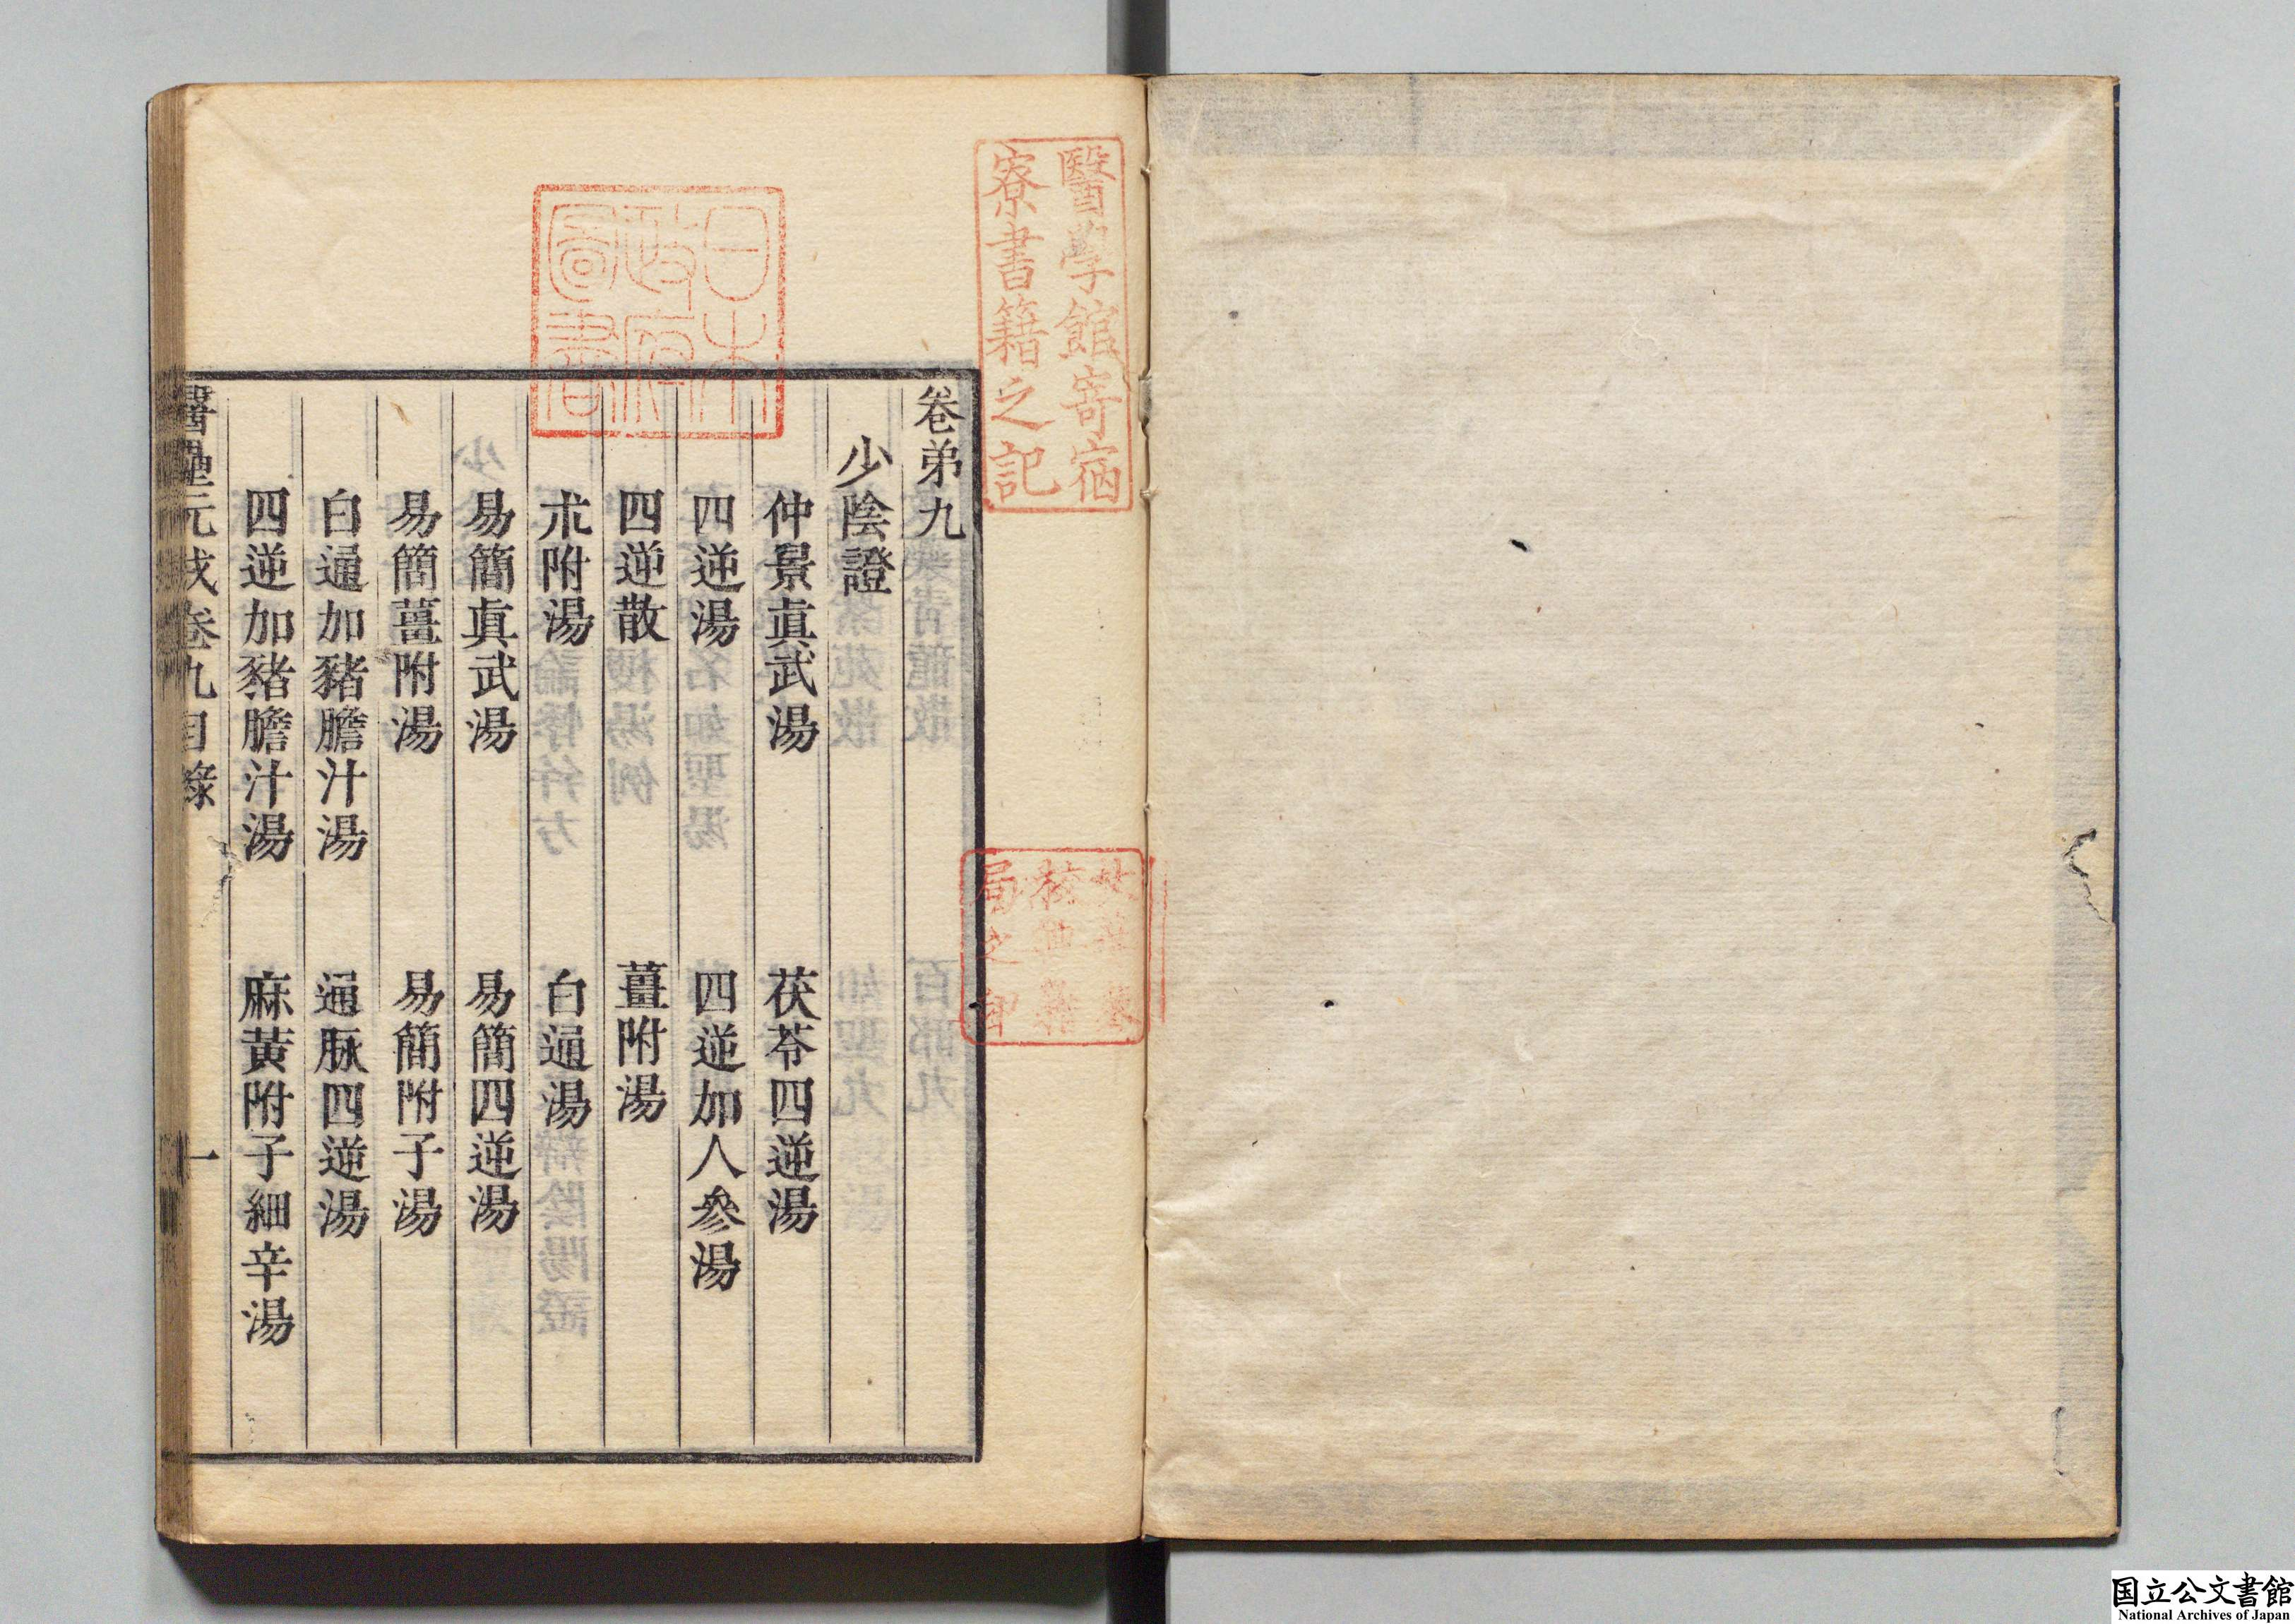 醫學館寄宿
寮書籍之記
日本
政府
圖書
卷弟九
少陰證
仲景眞武湯 茯苓四逆湯
四逆湯 四逆加人參湯
四逆散 薑附湯
朮附湯 白通湯
易簡眞武湯 易簡四逆湯
易簡薑附湯 易簡附子湯
白通加豬膽汁湯 通脉四逆湯
四逆加豬膽汁湯 麻黃附子細辛湯
醫壘元戎卷九目錄 一
局之印
国立公文書館
National Archives of Japan